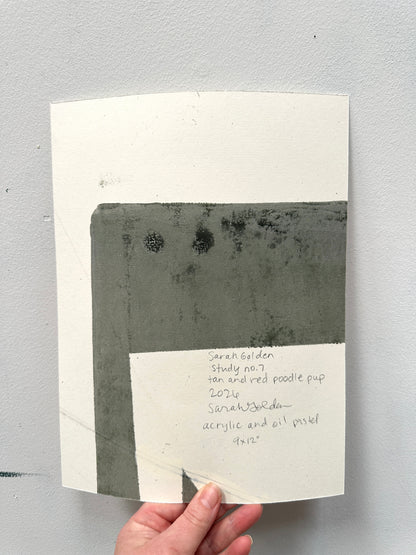 Sarah Golden
Study no.7
tan and red poodle pup
2026
Sarah Golden
acrylic and oil pastel
9x12"